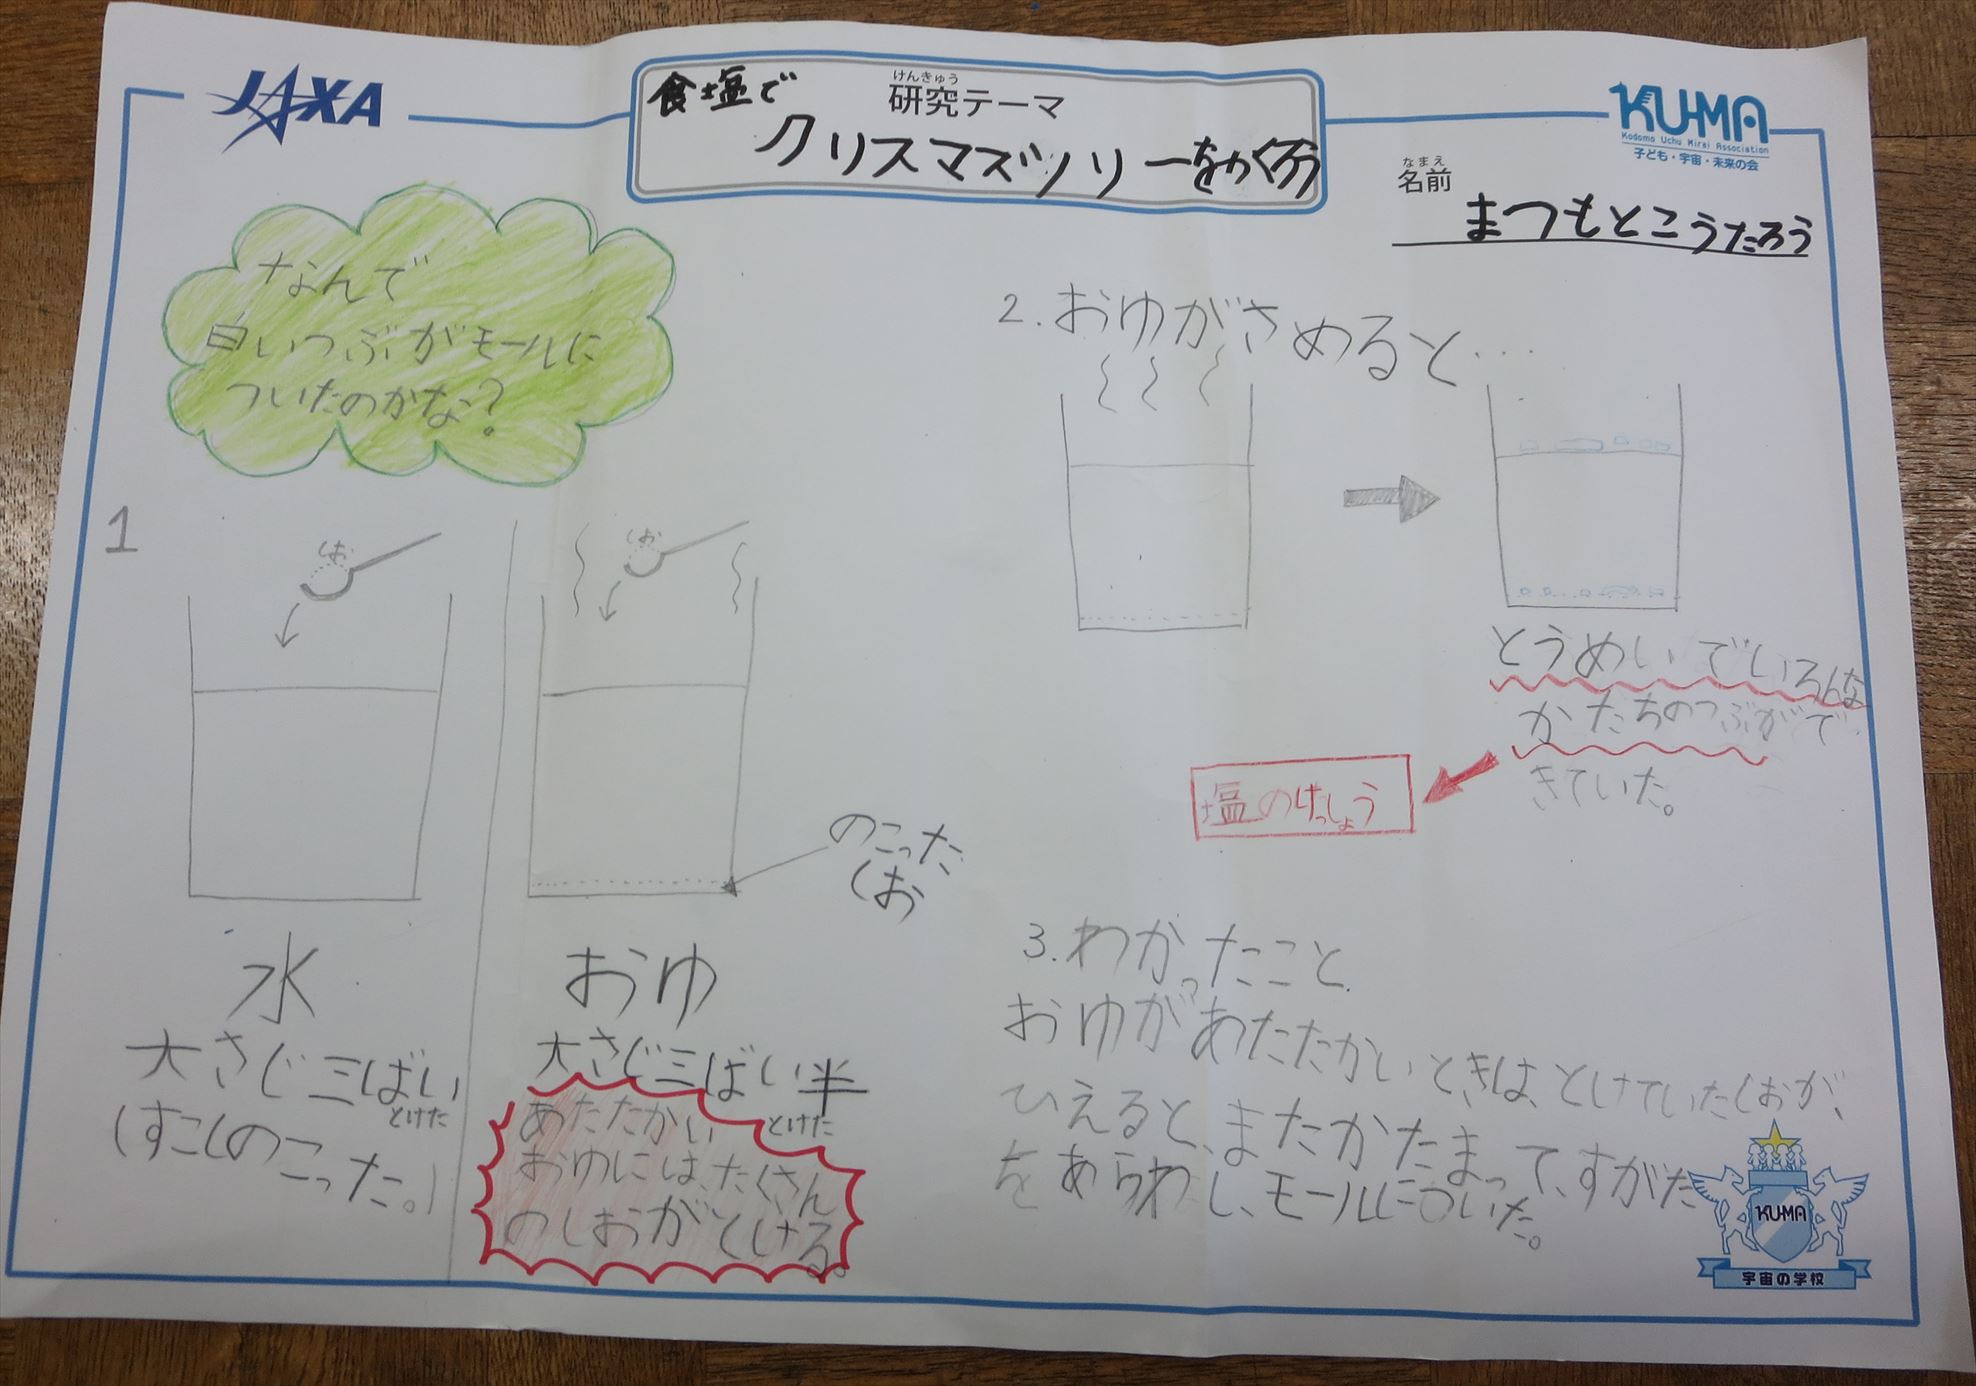 JAXA
けんきゅう
研究テーマ
食塩で
クリスマスツリーをつくろう
KU-MA
Kodomo Uchu Mirai Association
子ども・宇宙・未来の会
なまえ
名前
まつもとこうたろう
なんで
白いつぶがモールに
ついたのかな?
1
しお
しお
のこった
しお
水
大さじ三ばい
とけた
(すこしのこった。)
おゆ
大さじ三ばい半
とけた
あたたかい
おゆには、たくさん
のしおがとける。
2.おゆがさめると…
とうめいでいろんな
かたちのつぶがで
きていた。
塩のけっしょう
3.わかったこと
おゆがあたたかいときは、とけていたしおが、
ひえると、またかたまって、すがた
をあらわし、モールについた。
KU-MA
宇宙の学校